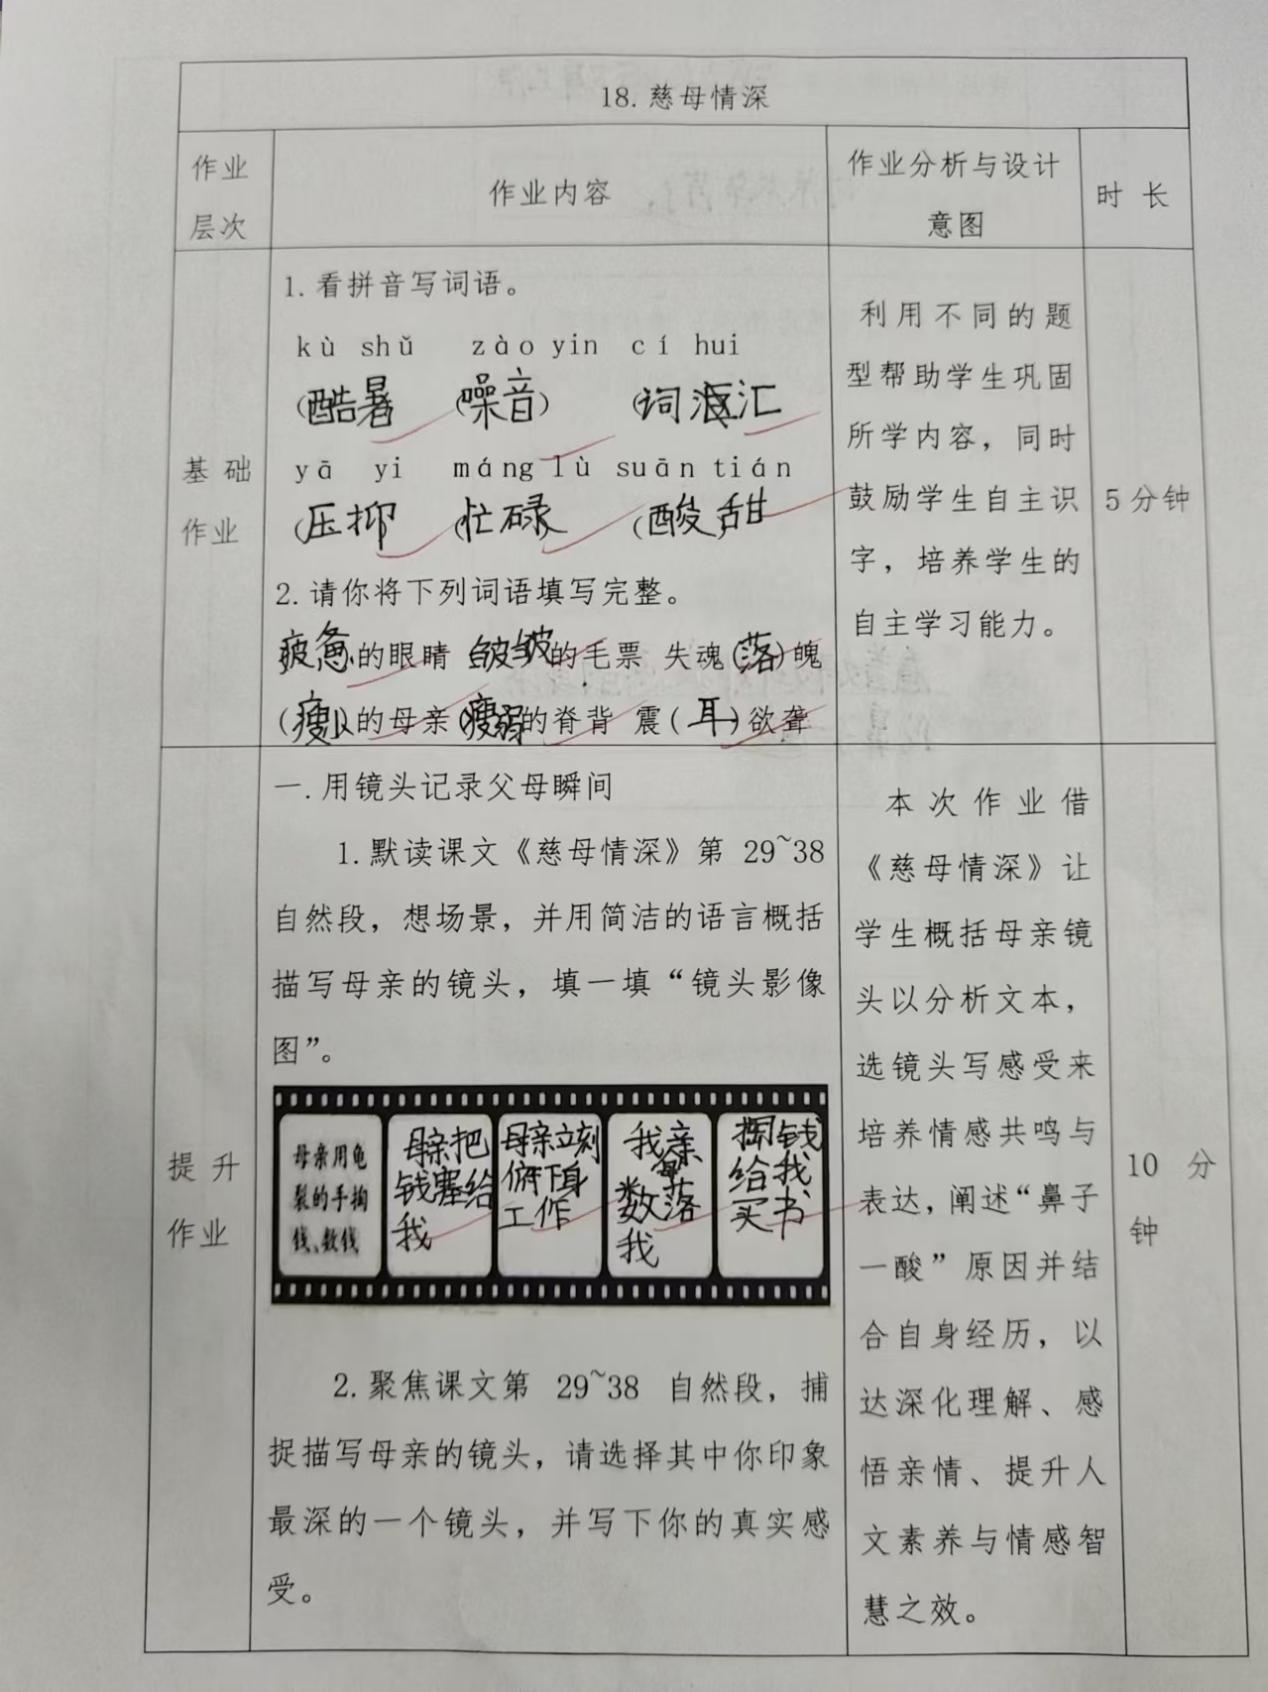 18.慈母情深
作业
层次
作业内容
作业分析与设计
意图
时 长
基 础
作业
1.看拼音写词语。
kù shǔ zào yin cí hui
(酷暑 (噪音) (词汇
yā yi máng lù suān tián
(压抑 (忙碌 (酸甜
2.请你将下列词语填写完整。
疲惫的眼睛 皱皱的毛票 失魂(落)魄
(瘦小的母亲 (瘦弱的脊背 震(耳)欲聋
利用不同的题
型帮助学生巩固
所学内容，同时
鼓励学生自主识
字，培养学生的
自主学习能力。
5分钟
提 升
作业
一.用镜头记录父母瞬间
1.默读课文《慈母情深》第 29~38
自然段，想场景，并用简洁的语言概括
描写母亲的镜头，填一填“镜头影像
图”。
母亲用龟
裂的手掏
钱、数钱
母亲把
钱塞给
我
母亲立刻
俯下身
工作
母亲
数落
我
掏钱
给我
买书
2.聚焦课文第 29~38 自然段，捕
捉描写母亲的镜头，请选择其中你印象
最深的一个镜头，并写下你的真实感
受。
本次作业借
《慈母情深》让
学生概括母亲镜
头以分析文本，
选镜头写感受来
培养情感共鸣与
表达，阐述“鼻子
一酸”原因并结
合自身经历，以
达深化理解、感
悟亲情、提升人
文素养与情感智
慧之效。
10 分
钟